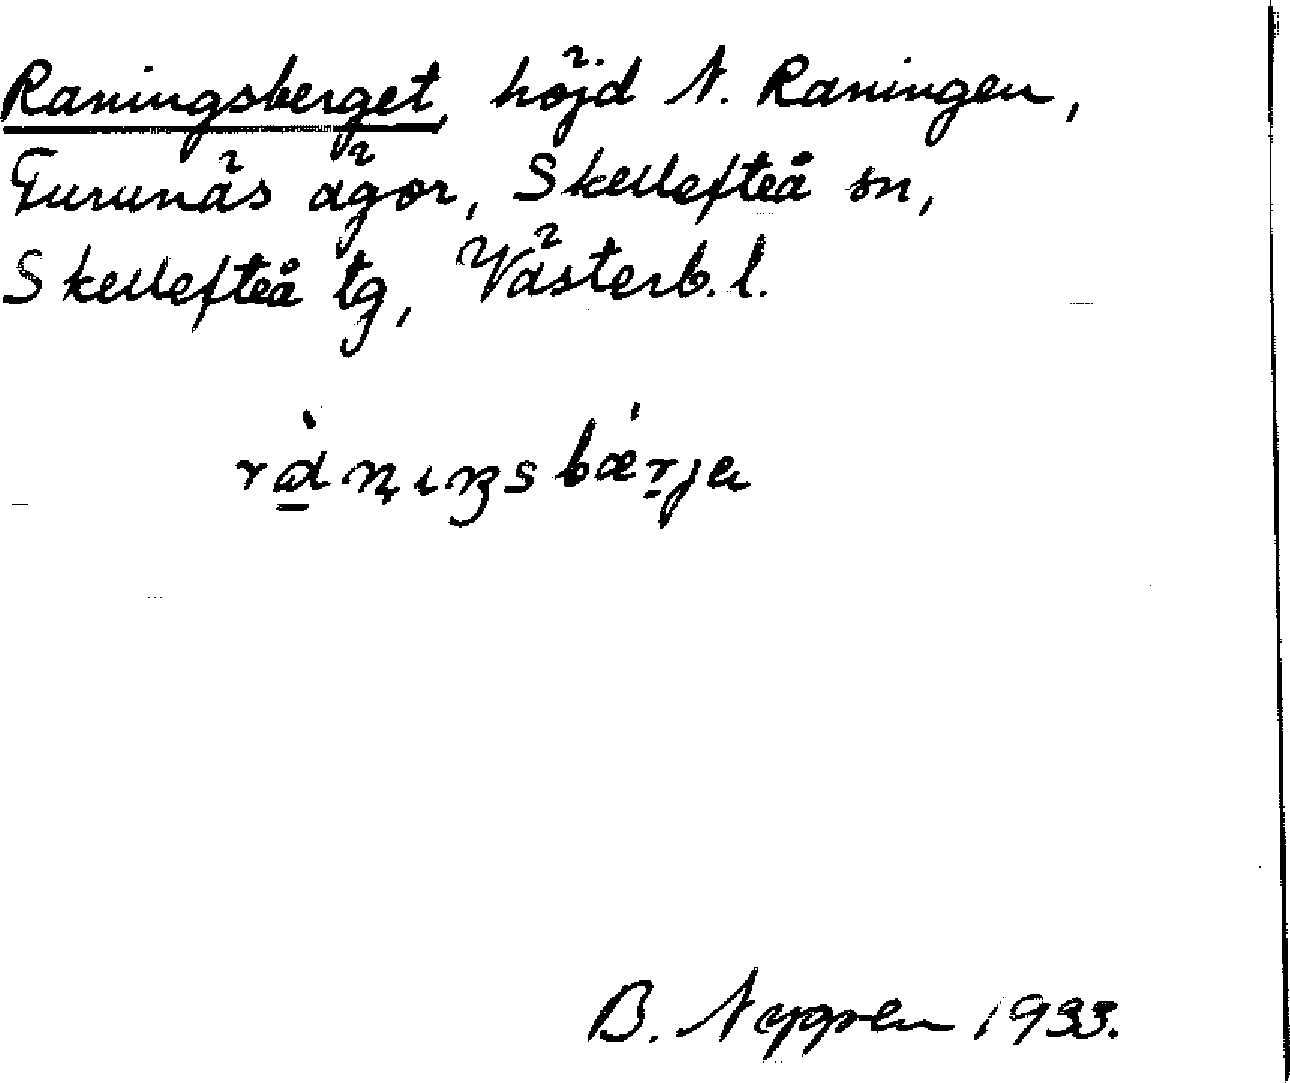 Raningsberget, höjd N. Raningen,
Furunäs ägor, Skellefteå sn,
Skellefteå tg, Västerb. l.
rɑ̱̀n̨ıŋsbǽr̤ja
B. Nygren 1933.